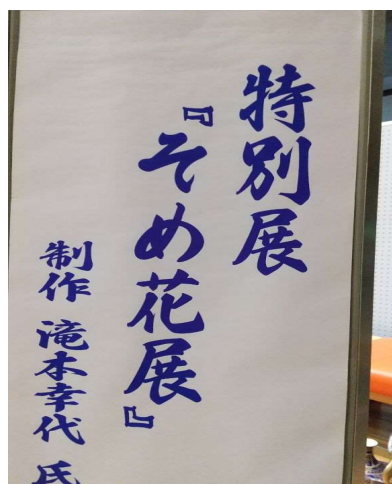 特別展
『そめ花展』
制作 滝本幸代 氏